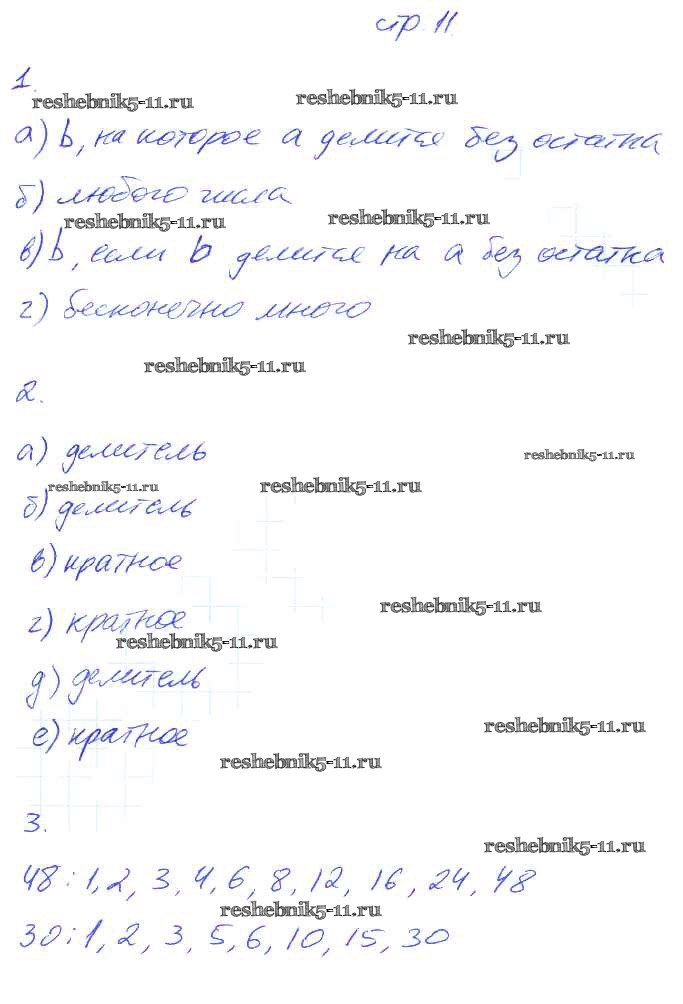 стр. 11.
1.
reshebnik5-11.ru reshebnik5-11.ru
а) b, на которое а делится без остатка
б) любого числа
reshebnik5-11.ru reshebnik5-11.ru
в) b, если b делится на а без остатка
г) бесконечно много
reshebnik5-11.ru
reshebnik5-11.ru
2.
а) делитель
reshebnik5-11.ru
reshebnik5-11.ru reshebnik5-11.ru
б) делитель
в) кратное
reshebnik5-11.ru
г) кратное
reshebnik5-11.ru
д) делитель
reshebnik5-11.ru
е) кратное
reshebnik5-11.ru
3.
reshebnik5-11.ru
48 : 1, 2, 3, 4, 6, 8, 12, 16, 24, 48
reshebnik5-11.ru
30 : 1, 2, 3, 5, 6, 10, 15, 30